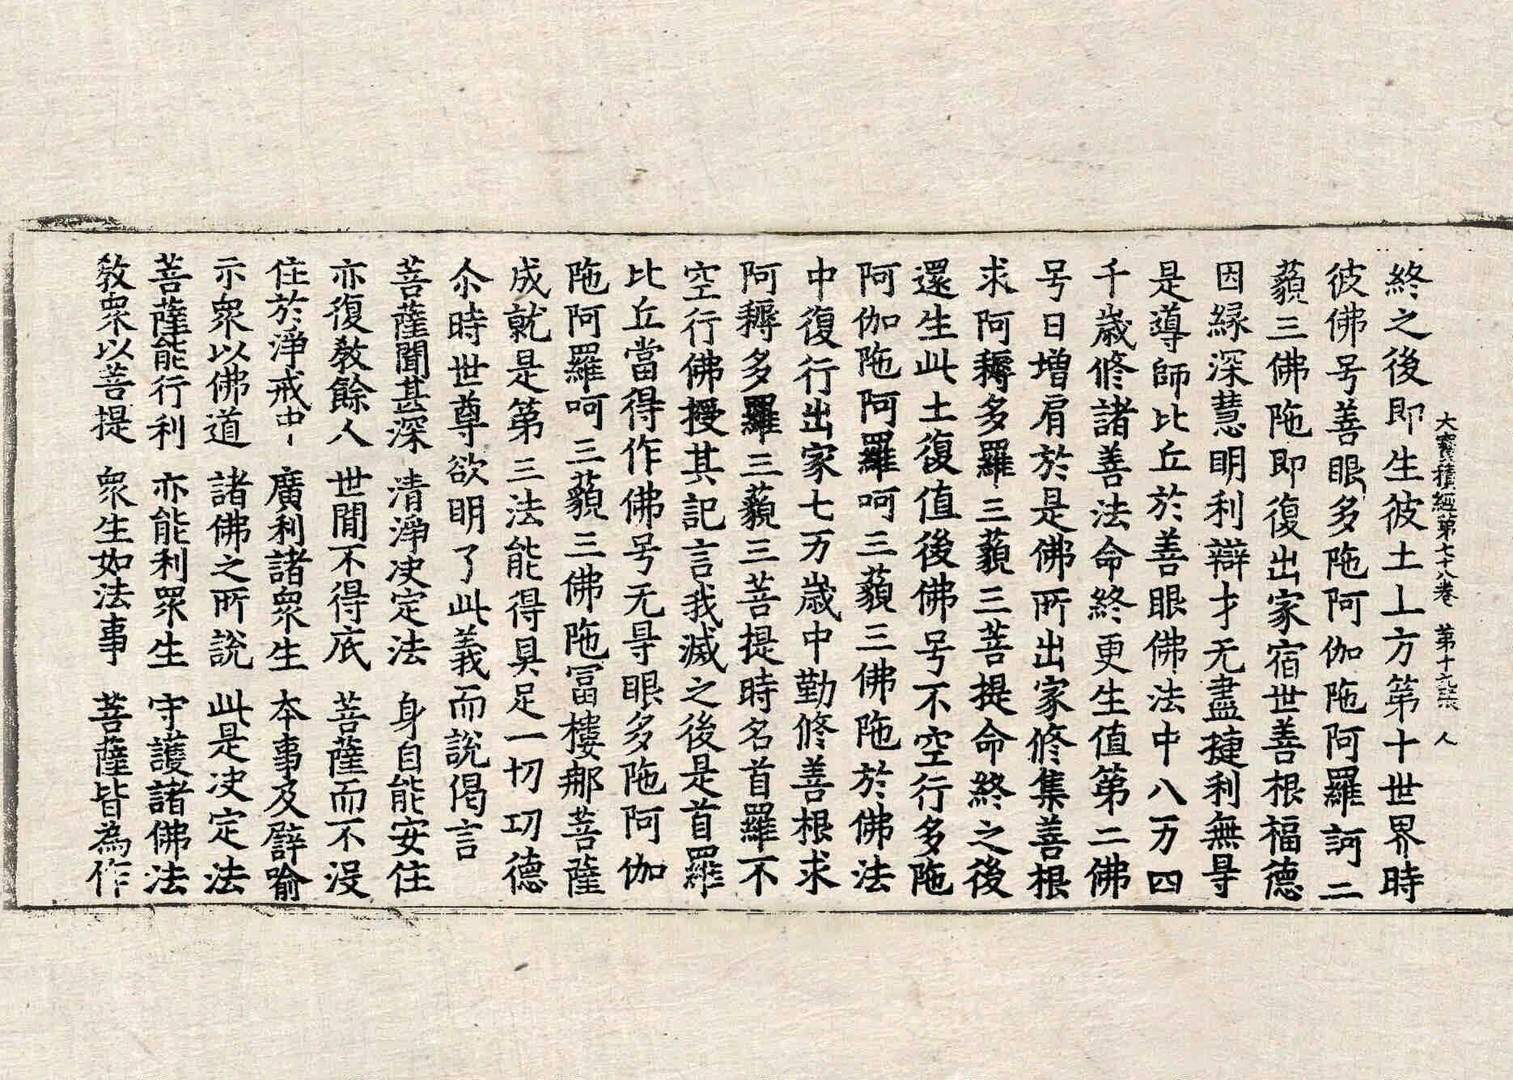 大寳積經第七十八卷 第十九張 人
終之後即生彼土上方第十世界時
彼佛号善眼多陁阿伽陁阿羅訶二
藐三佛陁即復出家宿世善根福德
因緣深慧明利辯才无盡捷利無㝵
是導師比丘於善眼佛法中八万四
千歲修諸善法命終更生值第二佛
号日增肩於是佛所出家修集善根
求阿耨多羅三藐三菩提命終之後
還生此土復值後佛号不空行多陁
阿伽陁阿羅呵三藐三佛陁於佛法
中復行出家七万歲中勤修善根求
阿耨多羅三藐三菩提時名首羅不
空行佛授其記言我滅之後是首羅
比丘當得作佛号无㝵眼多陁阿伽
陁阿羅呵三藐三佛陁冨樓那菩薩
成就是第三法能得具足一切功德
尒時世尊欲明了此義而說偈言
菩薩聞甚深 清淨决定法 身自能安住
亦復教餘人 世閒不得底 菩薩而不沒
住於淨戒中 廣利諸衆生 本事及譬喻
示衆以佛道 諸佛之所說 此是决定法
菩薩能行利 亦能利眾生 守護諸佛法
教衆以菩提 衆生如法事 菩薩皆為作